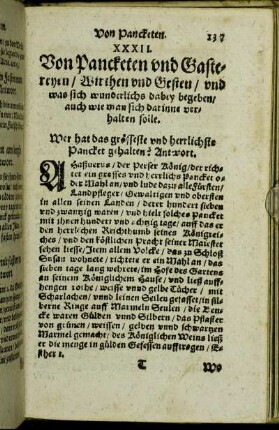 Von Pancketen. 137
XXXII.
Von Pancketen vnd Gaste-
reyen / Wirthen vnd Gesten / vnd
was sich wunderlichs dabey begeben /
auch wie man sich darinne ver-
halten solle.
Wer hat das grösseste vnd herrlichste
Pancket gehalten? Antwort.
Ahsuerus / der Perser König / der rich-
tet ein grosses vnd herrlichs Pancket o-
der Mahl an / vnd lude dazu alle Fürsten /
Landpfleger / Gewaltigen vnd obersten
in allen seinen Landen / derer hundert sieben
vnd zwantzig waren / vnd hielt solches Pancket
mit ihnen hundert vnd achtzig tage / auff das er
den herrlichen Reichthumb seines Königrei-
ches / vnd den köstlichen Pracht seiner Maiestet
sehen liesse / Item allem Volcke / das zu Schloß
Susan wohnete / richtete er ein Mahl an / das
sieben tage lang wehrete / im Hofe des Gartens
an seinem Königlichem Hause / vnd ließ auff-
hengen rothe / weisse vnnd gelbe Tücher / mit
Scharlachen / vnnd leinen Seilen gefasset / in silb-
berne Ringe auff Marmeln Seulen / die Ben-
cke waren Gülden vnnd Silbern / das Pflaster
von grünen / weissen / gelben vnnd schwartzen
Marmel gemacht / des Königlichen Weins ließ
er die menge in gülden Gefessen aufftragen / Es-
ther 1.
T Wo